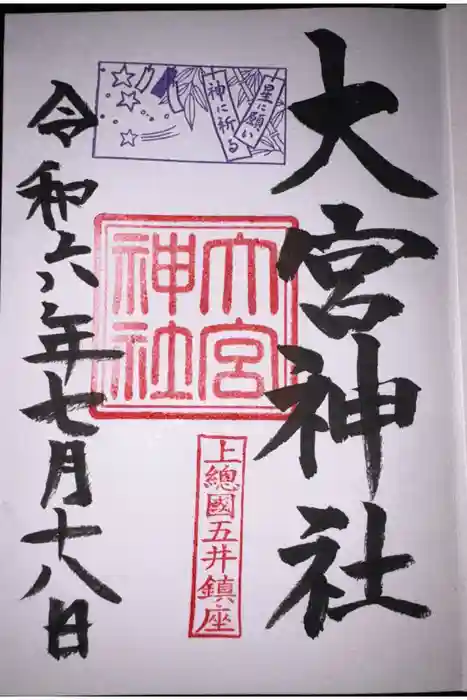 大宮神社
星に願い
神に祈る
大宮
神社
上總國五井鎮座
令和六年七月十八日